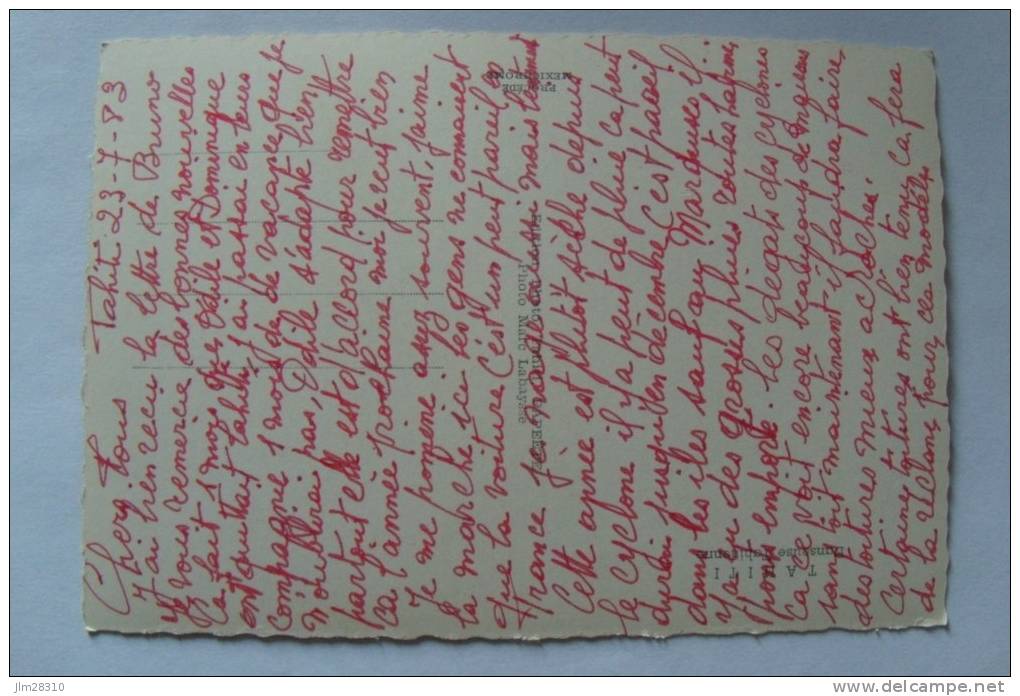 Tahiti 23-7-83
Chers Tous
J'ai bien recu la lettre de Bruno
je vous remercie des bonnes nouvelles
Ca fait 1 moi que Odile et Dominique
ont quittait tahiti, j'ai passai en leurs
compagnie 1 mois de vacance que je
n'oublierai pas, Odile s'adapte bien
partout elle est d'accord pour remettre
Ca l'année prochaine, moi je veut bien
Je me promène assez souvent, j'aime
la marche ici les gens ne connaient
que la voiture C'est un peut pareil en
france je marche aussi mais
Cette année est plutot sèche depuis
le cyclone il y a peut de pluie ca peut
durair jusqu'en décembre C'est pareil
dans les iles sauf aux Marquises il
y a eu des grosses pluies routes
pont emporté. les degats des cyclones
Ca se voit encore beaucoup de maisons
sans toit maintenant il faudra faire
des toitures mieux acrochée
Certaines toitures ont bien tenu ca fera
de la réclame pour ces modèles
TAHITI
Danseuse Tahitienne
Photo Marc Labaysse
PROCÉDÉ
MEXICHROME
jlm28310
www.delcampe.net